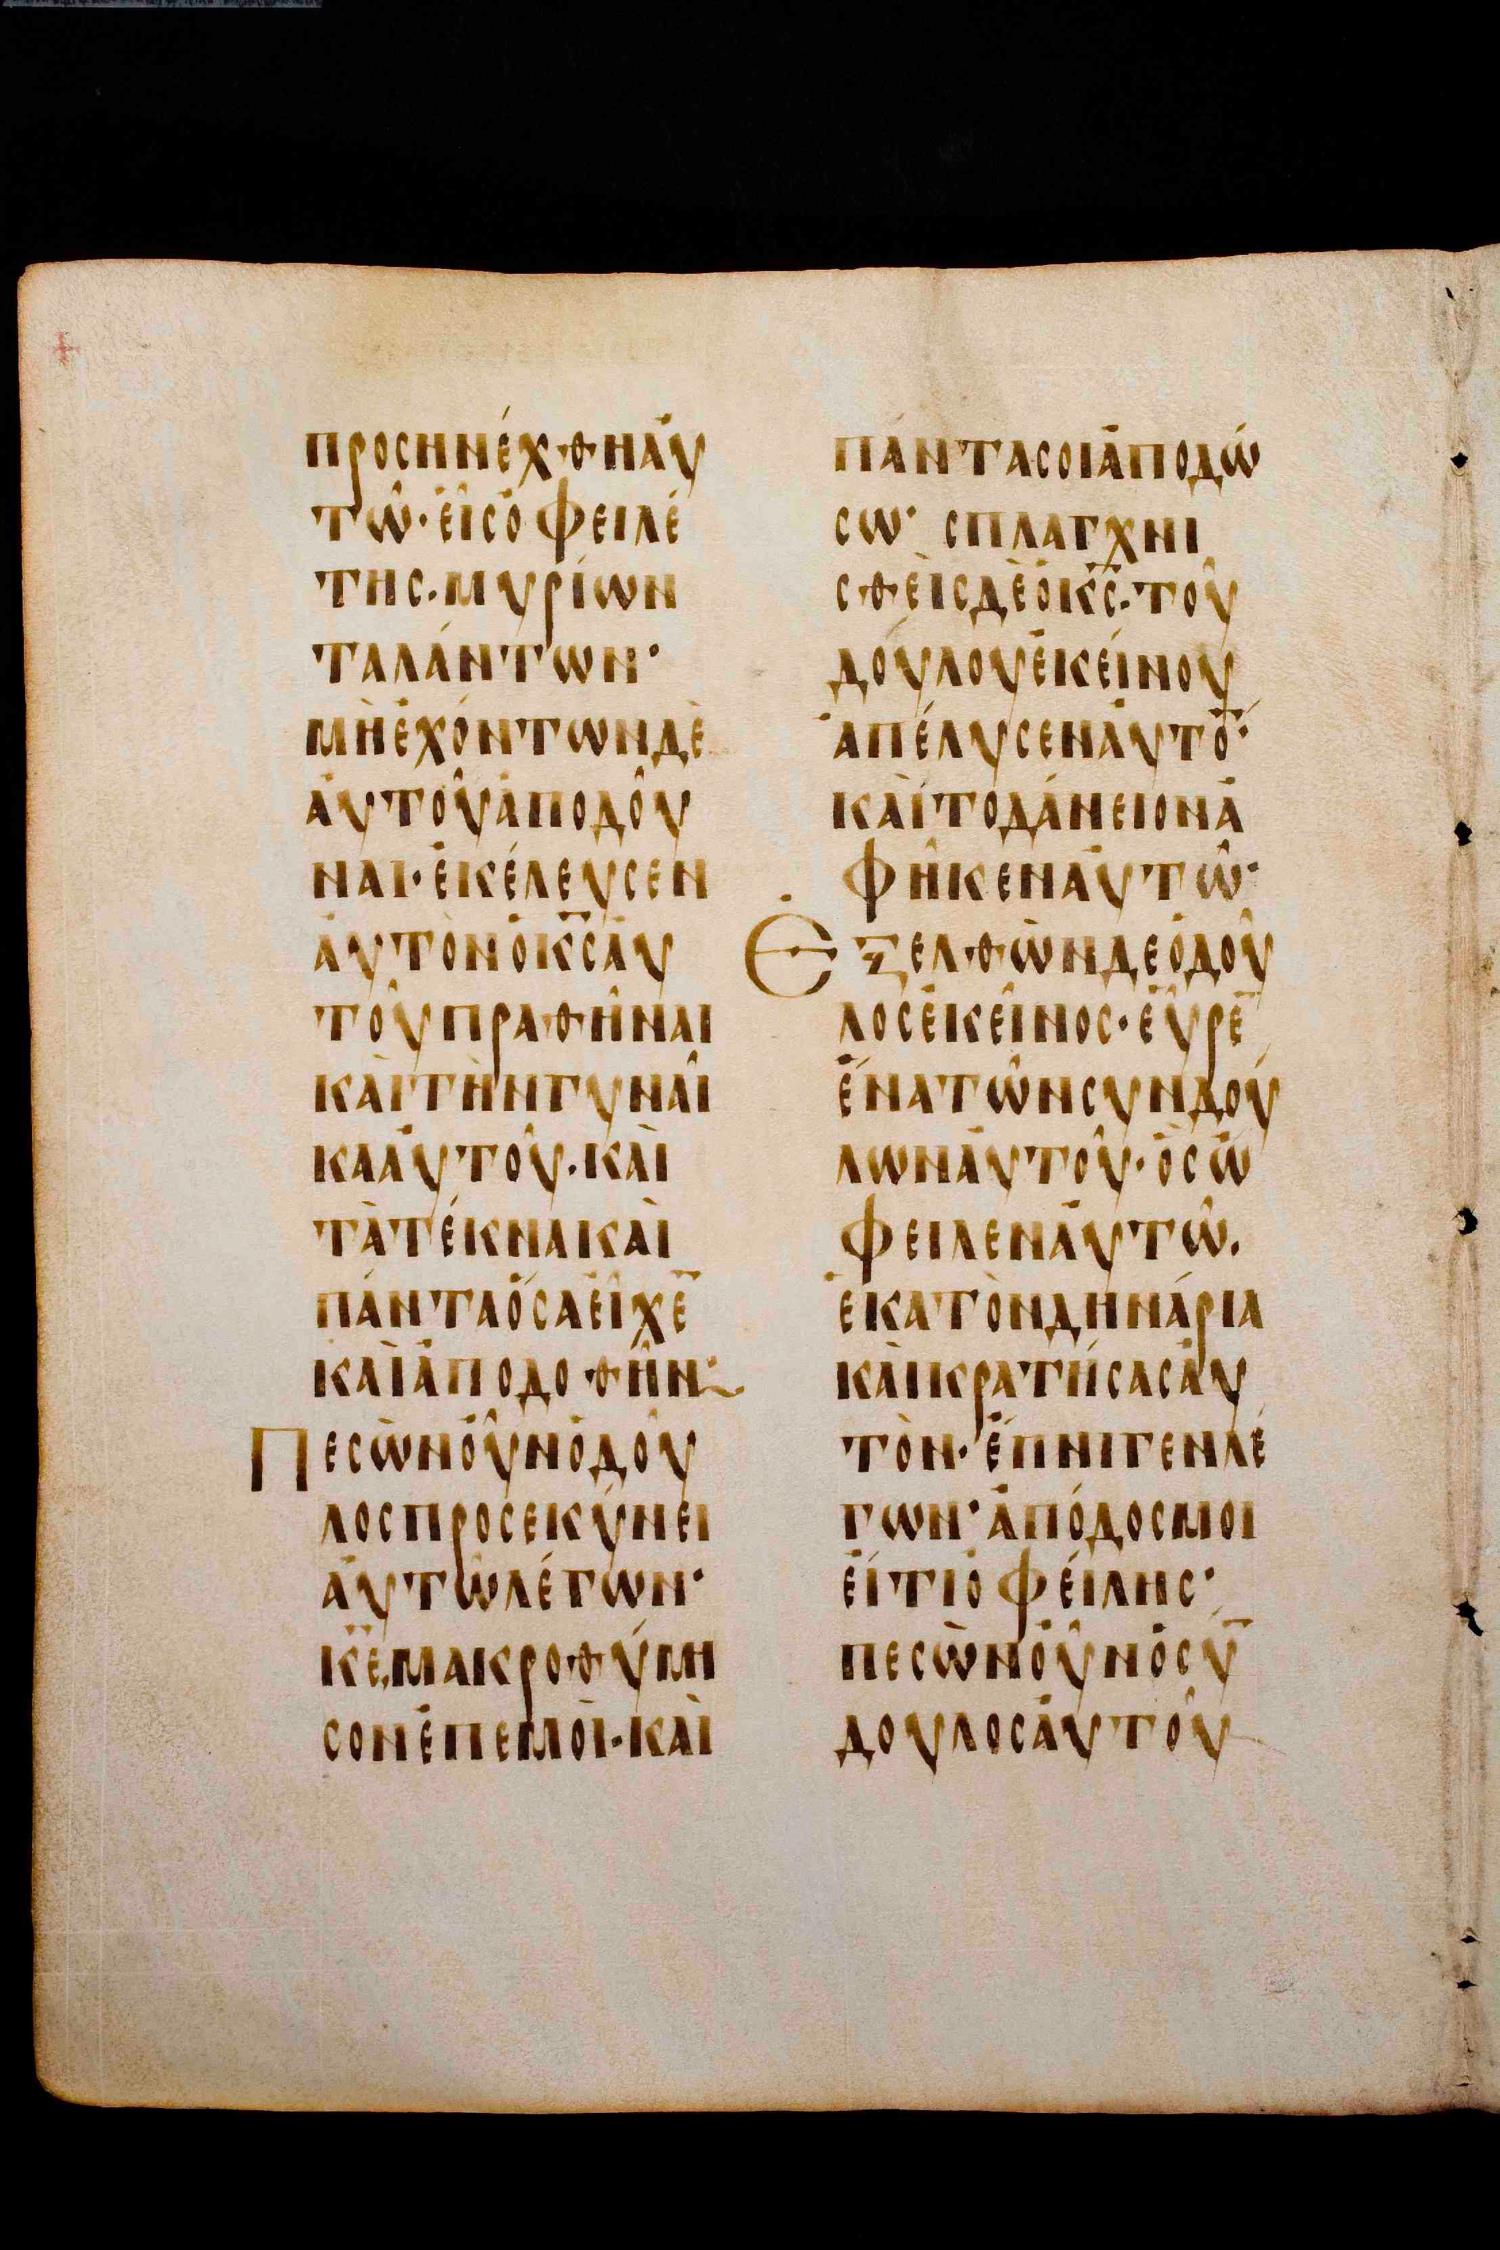 ΠΡΟCΗΝΈΧΘΗΑΥ
ΤΩ͂·ΕἹCὈΦΕΙΛΈ
ΤΗC·ΜΥΡΊΩΝ
ΤΑΛΆΝΤΩΝ·
ΜῊἘΧΌΝΤΩΝΔῈ
ἈΥΤΟΥ͂ἈΠΟΔΟΥ͂
ΝΑΙ·ἘΚΈΛΕΥCΕΝ
ἈΥΤῸΝὉΚ̅C̅ἈΥ
ΤΟΥ͂ΠΡΑΘΗ͂ΝΑΙ
ΚΑῚΤῊΝΓΥΝΑΙ͂
ΚΑἈΥΤΟΥ͂·ΚΑῚ
ΤᾺΤΈΚΝΑΚΑῚ
ΠΆΝΤΑὍCΑΕἾΧΕ̅
ΚΑῚἈΠΟΔΟΘΗ͂Ν·
ΠΕCῺΝὈΥ͂ΝὉΔΟΥ͂
ΛΟCΠΡΟCΕΚΎΝΕΙ
ἈΥΤΩ͂ΛΈΓΩΝ·
Κ̅Ε̅ΜΑΚΡΟΘΎΜΗ
CΟΝἘΠΕΜΟῚ·ΚΑῚ
ΠΆΝΤΑCΟΙἈΠΟΔΏ
CΩ· CΠΛΑΓΧΝΙ
CΘΕῚCΔῈὉΚ̅C̅·ΤΟΥ͂
ΔΟΎΛΟΥἘΚΕΊΝΟΥ
ἈΠΈΛΥCΕΝἈΥΤΟ̅·
ΚΑῚΤΟΔΆΝΕΙΟΝἈ
ΦΗ͂ΚΕΝἈΥΤΩ͂·
ΕΞΕΛΘῺΝΔΕὉΔΟΥ͂
ΛΟCἘΚΕΙ͂ΝΟC·ΕὟΡΕ̅
ἝΝΑΤΩ͂ΝCΥΝΔΟΎ
ΛΩΝἈΥΤΟΥ͂·ὋCὨ
ΦΕΙΛΕΝἈΥΤΩ͂·
ἙΚΑΤῸΝΔΗΝΆΡΙΑ
ΚΑῚΚΡΑΤΉCΑCἈΥ
ΤῸΝ·ἜΠΝΙΓΕΝΛΈ
ΓΩΝ·ἈΠΌΔΟCΜΟΙ
ΕἼΤΙὈΦΈΙΛΗC·
ΠΕCῺΝὈΥ͂ΝὉCΥ̅
ΔΟΥΛΟCἈΥΤΟΥ͂